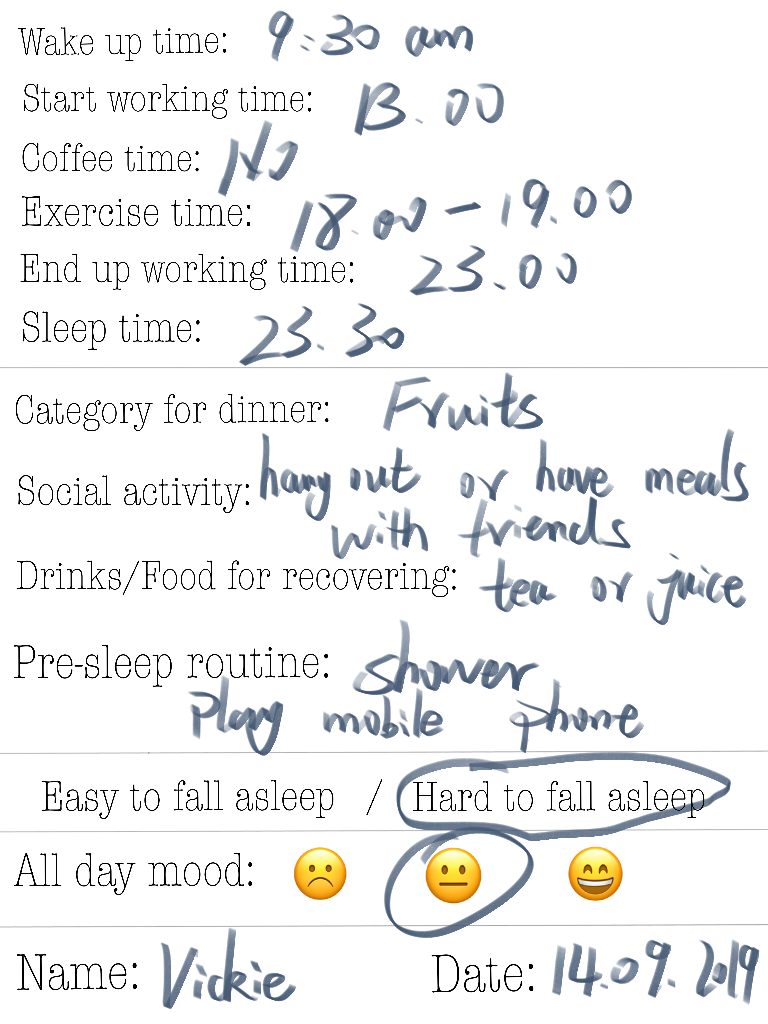 Wake up time: 9:30 am
Start working time: 13.00
Coffee time: No
Exercise time: 18.00 - 19.00
End up working time: 23.00
Sleep time: 23.30
Category for dinner: Fruits
Social activity: hang out or have meals
with friends
Drinks/Food for recovering: tea or juice
Pre-sleep routine: shower
play mobile phone
Easy to fall asleep / Hard to fall asleep
All day mood:
Name: Vickie Date: 14.09.2019